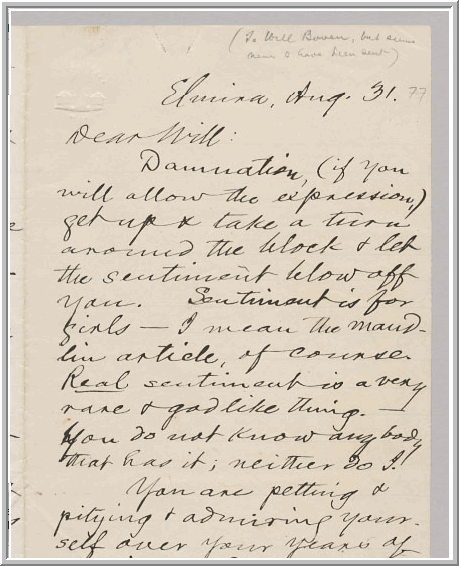 (To Will Bowen, but seems
never to have been sent)
Elmira, Aug. 31. 77
Dear Will:
Damnation, (if you
will allow the expression,)
get up & take a turn
around the block & let
the sentiment blow off
you. Sentiment is for
girls — I mean the maud-
lin article, of course.
Real sentiment is a very
rare & godlike thing. —
You do not know anybody
that has it; neither do I.
You are petting &
pitying & admiring your-
self over your years of